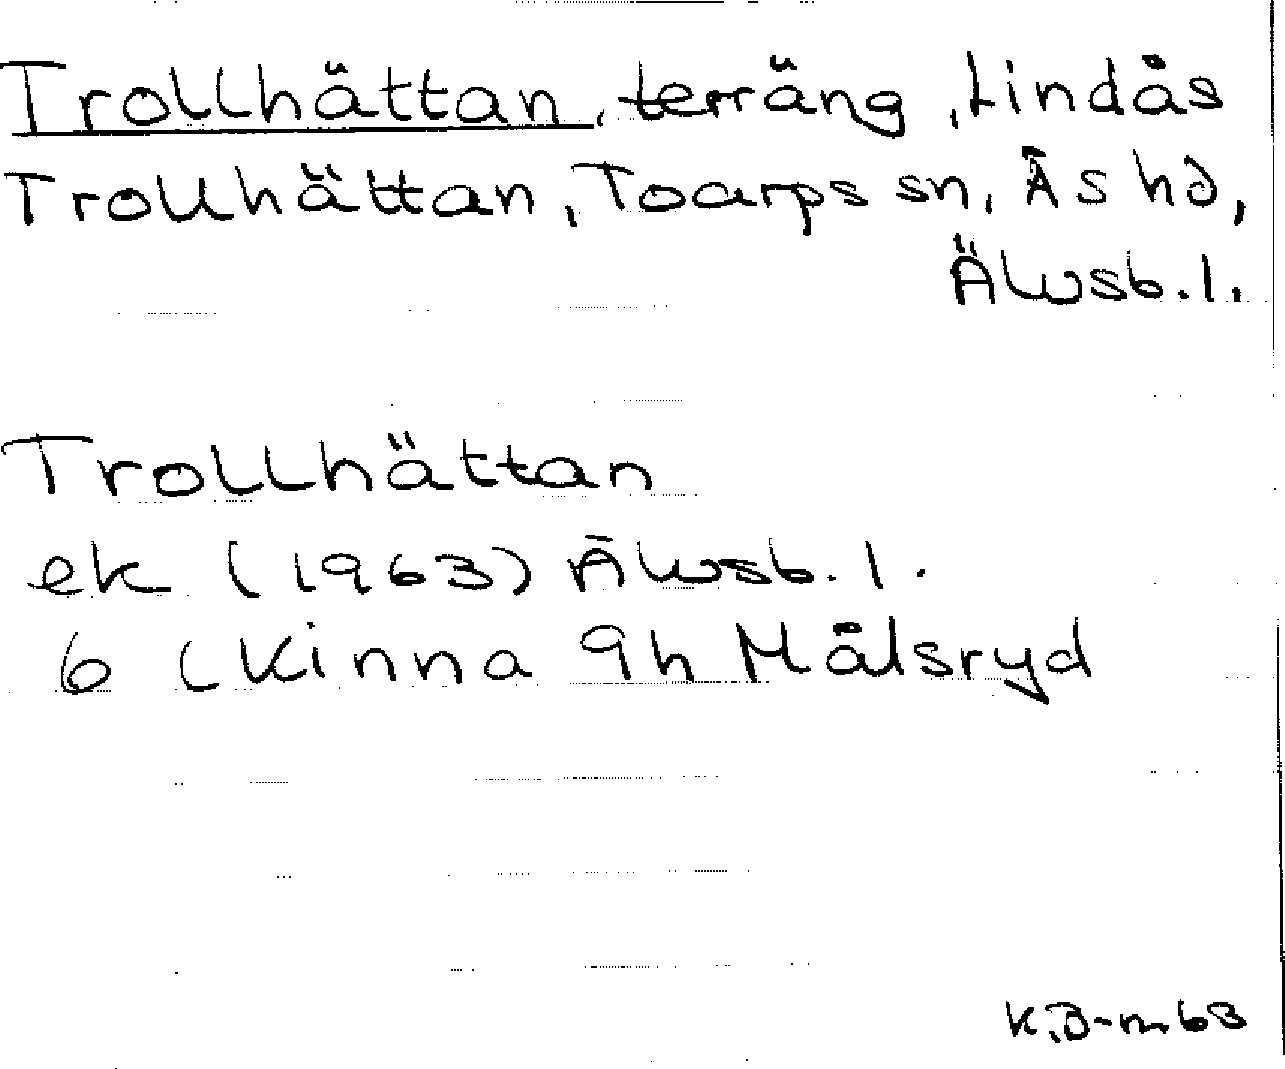 Trollhättan, terräng, Lindås
Trollhättan, Toarps sn, Ås hd,
Älvsb. l.
Trollhättan
ek (1963) Älvsb. l.
6 (Kinna 9h Målsryd
K.B-m 63